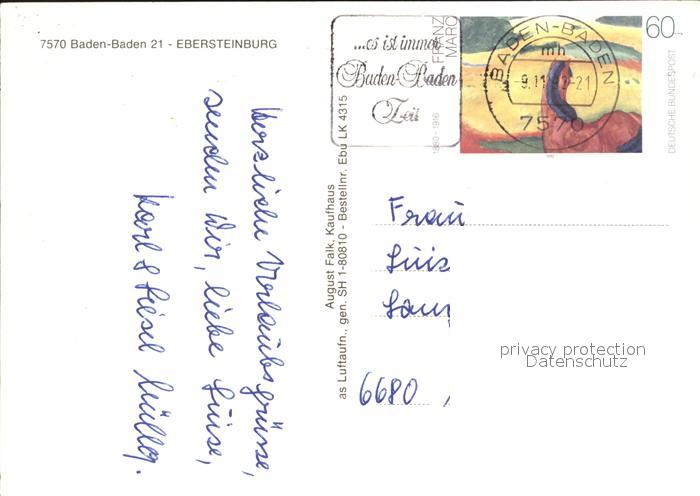 7570 Baden-Baden 21 - EBERSTEINBURG
Herzliche Urlaubsgrüsse,
senden Wir, liebe Luise,
Karl & Liesel Müller.
August Falk, Kaufhaus
as Luftaufn., gen. SH 1-80810 - Bestellnr. Ebu LK 4315
...es ist immer
Baden-Baden
Zeit
FRANZ
MARC
1880-1916
60
DEUTSCHE BUNDESPOST
BADEN-BADEN
mh
-9.11.92-21
7570
Frau
Luis
6680
privacy protection
Datenschutz